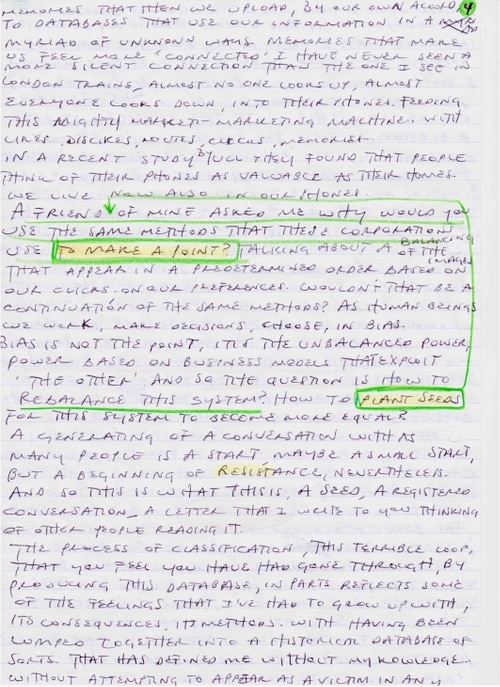 MEMORIES THAT THEN WE UPLOAD, BY OUR OWN ACORD, 4
TO DATABASES THAT USE OUR INFORMATION IN A
MYRIAD OF UNKNOWN WAYS. MEMORIES THAT MAKE
US FEEL MORE 'CONNECTED' I HAVE NEVER SEEN A
MORE SILENT CONNECTION THAN THE ONE I SEE IN
LONDON TRAINS, ALMOST NO ONE LOOKS UP, ALMOST
EVERYONE LOOKS DOWN, INTO THEIR PHONES. FEEDING
THIS ALIGHTLY MARKET-MARKETING MACHINE. WITH
LIKES, DISLIKES, ROUTES, CLICKS, MEMORIES.
IN A RECENT STUDY THEY FOUND THAT PEOPLE
THINK OF THEIR PHONES AS VALUABLE AS THEIR HOMES.
WE LIVE NOW ALSO IN OUR PHONES.
A FRIEND OF MINE ASKED ME WHY WOULD YOU
USE THE SAME METHODS THAT THESE CORPORATIONS
USE TO MAKE A POINT? TALKING ABOUT A BALANCING OF THE IMAGES
THAT APPEAR IN A PREDETERMINED ORDER BASED ON
OUR CLICKS. ON OUR PREFERENCES. WOULDN'T THAT BE A
CONTINUATION OF THE SAME METHODS? AS HUMAN BEINGS
WE WORK, MAKE DECISIONS, CHOOSE, IN BIAS.
BIAS IS NOT THE POINT, IT IS THE UNBALANCED POWER,
POWER BASED ON BUSINESS MODELS THAT EXPLOIT
'THE OTHER'. AND SO THE QUESTION IS HOW TO
REBALANCE THIS SYSTEM? HOW TO PLANT SEEDS
FOR THIS SYSTEM TO BECOME MORE EQUAL?
A GENERATING OF A CONVERSATION WITH AS
MANY PEOPLE IS A START MAYBE A SMALL START,
BUT A BEGINNING OF RESISTANCE, NEVERTHELESS.
AND SO THIS IS WHAT THIS IS, A SEED, A REGISTERED
CONVERSATION, A LETTER THAT I WRITE TO YOU THINKING
OF OTHER PEOPLE READING IT.
THE PROCESS OF CLASSIFICATION, THIS TERRIBLE LOOP,
THAT YOU FEEL YOU HAVE HAD GONE THROUGH, BY
PRODUCING THIS DATABASE, IN PARTS REFLECTS SOME
OF THE FEELINGS THAT I'VE HAD TO GROW UP WITH,
ITS CONSEQUENCES, ITS METHODS. WITH HAVING BEEN
LUMPED TOGETHER INTO A HISTORICAL DATABASE OF
SORTS. THAT HAS DEFINED ME WITHOUT MY KNOWLEDGE.
WITHOUT ATTEMPTING TO APPEAR AS A VICTIM IN ANY